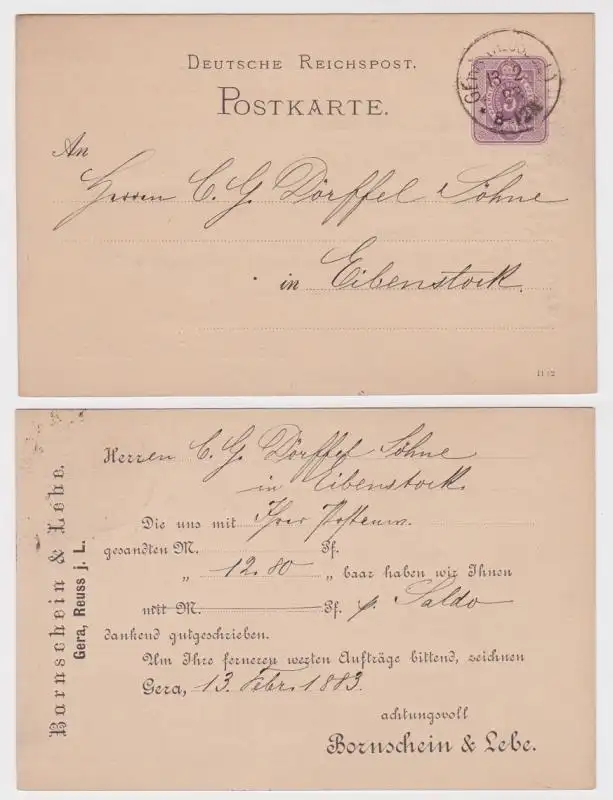 DEUTSCHE REICHSPOST.
POSTKARTE.
13 2
8-12N
5
An
Herren C. G. Dörffel Söhne
in Eibenstock.
11 82
Bornschein & Lebe.
Gera, Reuss j. L.
Herren C. G. Dörffel Söhne
in Eibenstock.
Die uns mit Ihrer
gesandten M. Pf.
„ 12.80 „ baar haben wir Ihnen
mit M. Pf. p. Saldo
dankend gutgeschrieben.
Um Ihre ferneren werten Aufträge bittend, zeichnen
Gera, 13. Febr. 1883.
achtungsvoll
Bornschein & Lebe.